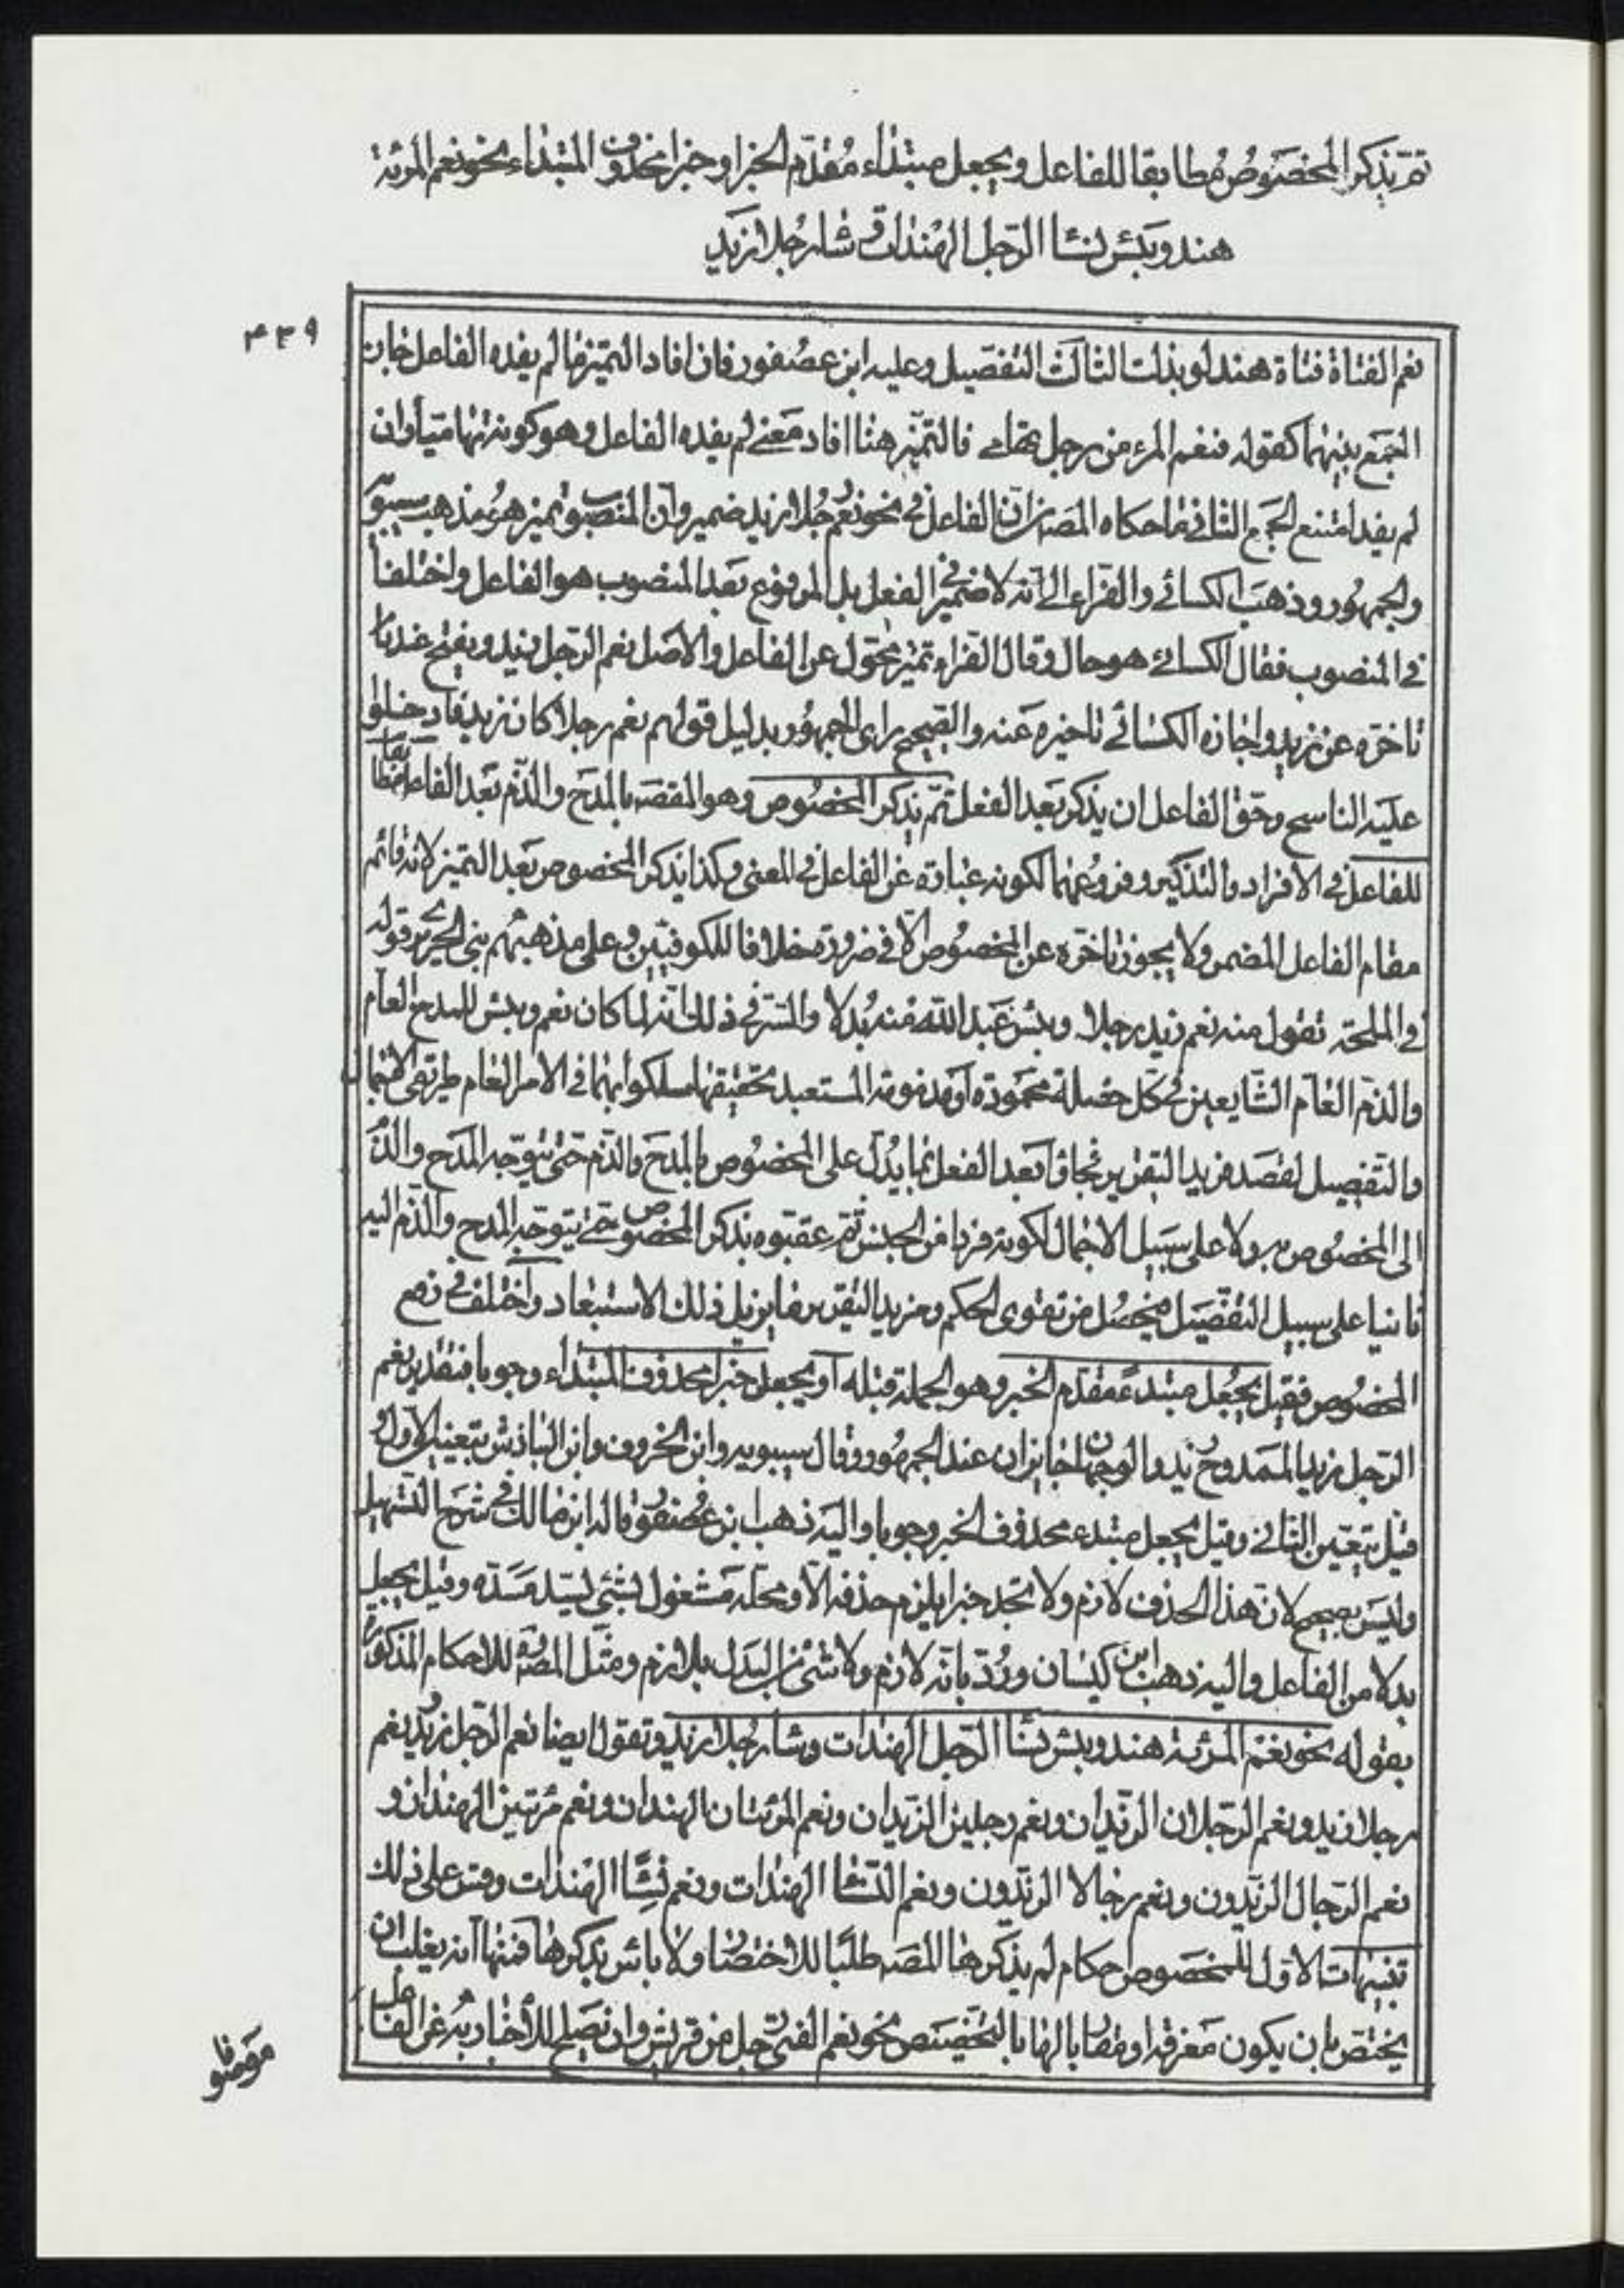 ثمّ يذكر المخصُوصُ مُطابقا للفاعل ويجعل مبتداء مُقدّم الخبر او خبرا محذوف المبتداء نحو نعم المرئة
هند وبئس نسٓا الرّجل الهندات وسٓا رجُلا زيد
٤٣٩
نعم الفتاة فتاة هند لو بذلت الثالث التفصيل وعليه ابن عصفور فان افاد التميز ما لم يفده الفاعل جاز
الجمع بينهما كقوله فنعم المرء من رجل تهامى فالتميّز هنا افاد معنى لم يفده الفاعل وهو كونه تهاميّا وان
لم يفد امتنع الجمع الثانى ما حكاه المصـ من ان الفاعل فى نحو نعم رجُلا زيد ضمير وان المنصوب تميز هو مذهب سيبويه
والجمهُور وذهب الكسائى والفرّاء الى انّه لا ضمير فى الفعل بل المرفوع بعد المنصوب هو الفاعل واختلفا
فى المنصوب فقال الكسائى هو حال وقال الفراء تميز محوّل عن الفاعل والاصل نعم الرّجل زيد ويقبح عنده
تاخره عن زيد واجازه الكسائى تاخيره عنه والصّحيح راى الجمهُور بدليل قولهم نعم رجلا كان زيد فادخلوا
عليه الناسخ وحقّ الفاعل ان يذكر بعد الفعل ثمّ يذكر المخصُوص وهو المقصـ بالمدح والذّم بعد الفاعل مطابقا
للفاعل فى الافراد والتذكير وفروعهما لكونه عبارة عن الفاعل فى المعنى وكذا يذكر المخصوص بعد التميز لانه قائم
مقام الفاعل المضمر ولا يجوز تاخره عن المخصُوص الّا فى ضرورة خلافا للكوفيّين وعلى مذهبهم بنى الحريرى قوله
فى الملحة تقول منه نعم زيد رجلا وبئس عبد اللّه منه بُدلا والسّر فى ذلك انّه لما كان نعم وبئس للمدح العام
والذّم العام الشّايعين فى كل خصلة محمُودة او مذمومة المستبعد تحقيقها سلكوا بهما فى الامر العام طريقى الاجمال
والتّفصيل لقصد مزيد التقرير فجاؤا بعد الفعل بما يدُلّ على المخصُوص بالمدح والذّم حتى يتوجّه المدح والذّم
الى المخصُوص به اولا على سبيل الاجمال لكونه فردا من الجنس ثمّ عقبوه بذكر المخصُوص حتى يتوجّه المدح والذّم اليه
ثانيا على سبيل التفصيل فيحصُل من تقوى الحكم ومزيد التقرير ما يزيل ذلك الاستبعاد واختلف فى رفع
المخصُوص فقيل يجُعل مبتدء مقدّم الخبر وهو الجملة قبله او يجعل خبرا محذوف المبتداء وجوبا فتقدير نعم
الرّجل زيد الممدوح زيد والوجهان جايزان عند الجمهُور وقال سيبويه وابن الخروف وابن الباذش بتعيين الاول و
قيل بتعين الثانى وقيل يجعل مبتدء محذوف الخبر وجوبا واليه ذهب ابن عُصفور قاله ابن مالك فى شرح التسهيل
وليس بصحيح لان هذا الحذف لازم ولا تجد خبرا يلزم حذفه الّا ومحلّه مشغول بشئى ليسّد مسدّه وقيل يجعل
بدلا من الفاعل واليه ذهب ابن كيسان ورُدّ بانّه لازم ولا شئ من البدل بلازم ومثّل المصـ للاحكام المذكورة
بقوله نحو نعم المرئة هند وبئس نسٓا الرّجل الهندات وسٓا رجُلا زيد وتقول ايضا نعم الرّجل زيد ونعم
رجلا زيد ونعم الرّجلان الزّيدان ونعم رجلين الزيدان ونعم المرئتان الهندان ونعم مرئتين الهندان و
نعم الرّجال الزّيدون ونعم رجالا الزيّدون ونعم النّسٓا الهندات ونعم نسٓا الهندات وقس على ذلك
تنبيهات الاول للمخصوص احكام لم يذكرها المصـ طلبًا للاختصار ولا باس بذكرها فمنها انه يغلب ان
يختص بان يكون معرفة او مقاربا لها بالتخصيص نحو نعم الفتى رجل من قريش وان يصلح للاخبار به عن الفاعل
موصوفا